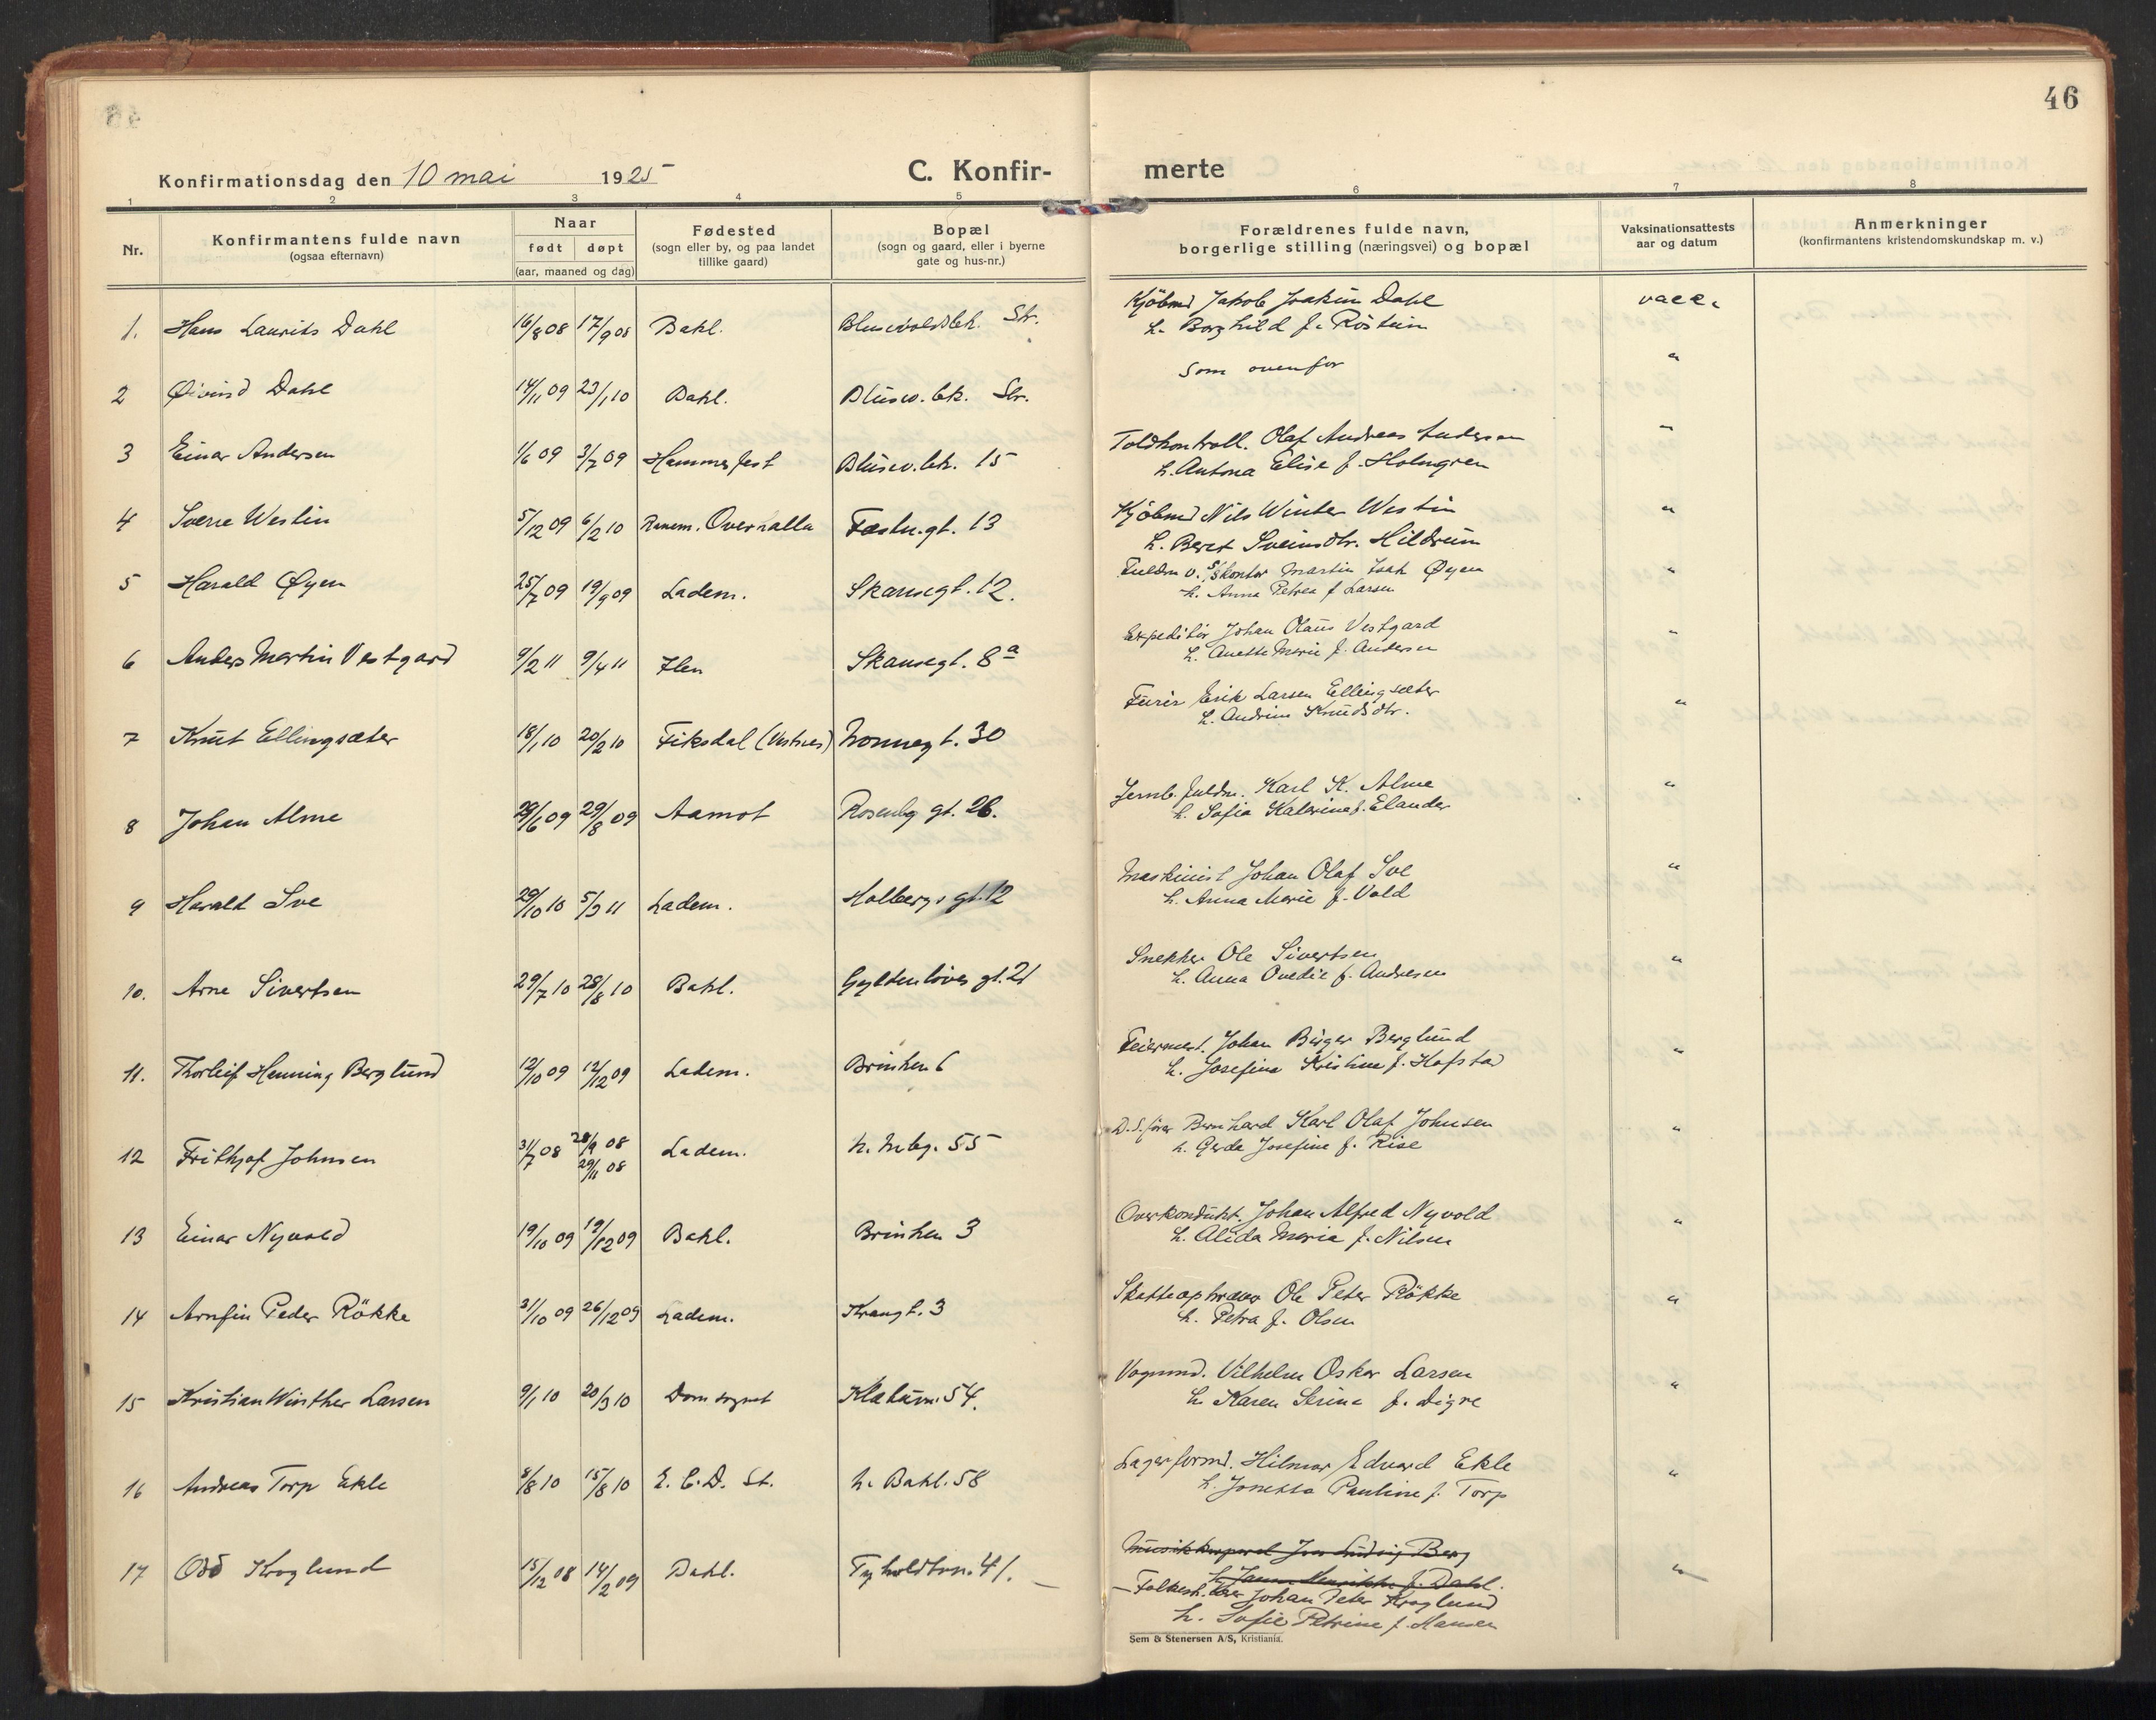 46
Konfirmationsdag den 10 mai 1925
C. Konfir-
merte
1 2 3 4 5 6 7 8
Nr.
Konfirmantens fulde navn
(ogsaa efternavn)
Naar
født døpt
(aar, maaned og dag)
Fødested
(sogn eller by, og paa landet
tillike gaard)
Bopæl
(sogn og gaard, eller i byerne
gate og hus-nr.)
Forældrenes fulde navn,
borgerlige stilling (næringsvei) og bopæl
Vaksinationsattests
aar og datum
Anmerkninger
(konfirmantens kristendomskundskap m. v.)
1. Hans Laurits Dahl 16/8 08 17/9 08 Bakl. Str. Kjöbmd Jakob Joakim Dahl vacc.
h. Borghild f. Röstum
2 Øivind Dahl 14/11 09 23/1 10 Bakl. Blusev. bk. Str. Som ovenfor "
3 Einar Andersen 1/6 09 3/7 09 Hammerfest Blusev. bk. 15 Toldkontroll. Olaf Andreas Andersen "
h. Antona Elise f. Holmgren
4 Sverre Westin 5/12 09 6/2 10 Ranem. Overhalla Fæstn.gt. 13 Kjöbmd Nils Winter Westin "
h. Beret Sveinsdtr. Hildrum
5 Harald Øyen 25/7 09 19/9 09 Ladem. Skansegt. 12. Fuldm v. S/skontor Martin Isak Øyen "
h. Anna Petrea f Larsen
6 Anders Martin Vestgard 9/2 11 9/4 11 Ilen Skansegt. 8a Expeditör Johan Olaus Vestgard "
h. Anette Marie f. Andersen
7 Knut Ellingsæter 18/1 10 20/2 10 Fiksdal (Vestnes) Nonnegt. 30 Furer Erik Larsen Ellingsæter "
h. Andrine Knudsdtr.
8 Johan Alme 29/6 09 29/8 09 Aamot Rosenbg gt. 26. Jernb. fuldm. Karl K. Alme "
h. Sofia Katrine f. Elander
9 Harald Sve 29/10 10 5/3 11 Ladem. Holbergs gt. 12 Maskinist Johan Olaf Sve "
h. Anna Marie f. Vold
10. Arne Sivertsen 29/7 10 28/8 10 Bakl. Gyldenlöves gt. 21 Snekker Ole Sivertsen "
h. Anna Ovedie f. Andresen
11. Thorleif Henning Berglund 12/10 09 12/12 09 Ladem. Brinken 6 Feiermest. Johan Birger Berglund "
h. Josefine Kristine f. Hofstad
12 Frithjof Johnsen 31/7 08 28/9 08 29/11 08 Ladem. N. Mbg. 55 D.S. förer Bernhard Karl Olaf Johnsen "
h. Gerda Josefine f. Rise
13 Einar Nyvold 19/10 09 19/12 09 Bakl. Brinken 3 Overkonduktt. Johan Alfred Nyvold "
h. Alida Maria f. Nilsen
14 Arnfin Peder Rökke 31/10 09 26/12 09 Ladem. Krangt. 3 Skatteopkræver Ole Peter Rökke "
h. Petra f. Olsen
15 Kristian Winther Larsen 9/1 10 20/3 10 Domsognet 54. Vognmd. Vilhelm Oskar Larsen "
h. Karen Serine f. Digre
16 Andreas Torp Ekle 8/8 10 15/8 10 E. C. D. St. N. Bakl. 58 Lagerformd. Hilmar Edvard Ekle "
h. Jonetta Pauline f. Torp
17 Odd Kroglund 15/12 08 14/2 09 Bakl. Tyholdtvn. 41. Musikkorporal Ivar Ludvig Berg "
f. Dahl.
Johan Peter Kroglund
h. Sofie Petrine f. Hansen
Sem & Stenersen A/S, Kristiania.